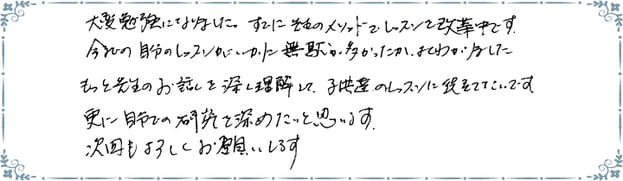 大変勉強になりました。すでに先生のメソッドでレッスンを改革中です。
今迄の自分のレッスンがいかに無駄が多かったか、よくわかりました
もっと先生のお話しを深く理解して、子供達のレッスンに役立てたいです
更に自分での研究を深めたいと思います。
次回もよろしくお願いします